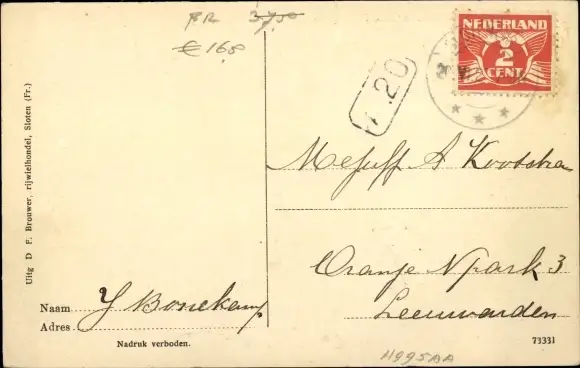 FR 37,50
€ 168
NEDERLAND
2
CENT
1.20
Mejuff A Kootstra
Oranje N park 3
Leeuwarden
Uitg D F. Brouwer, rijwielhandel, Sloten (Fr.)
Naam Y Bonekamp
Adres
Nadruk verboden.
73331
H995AA